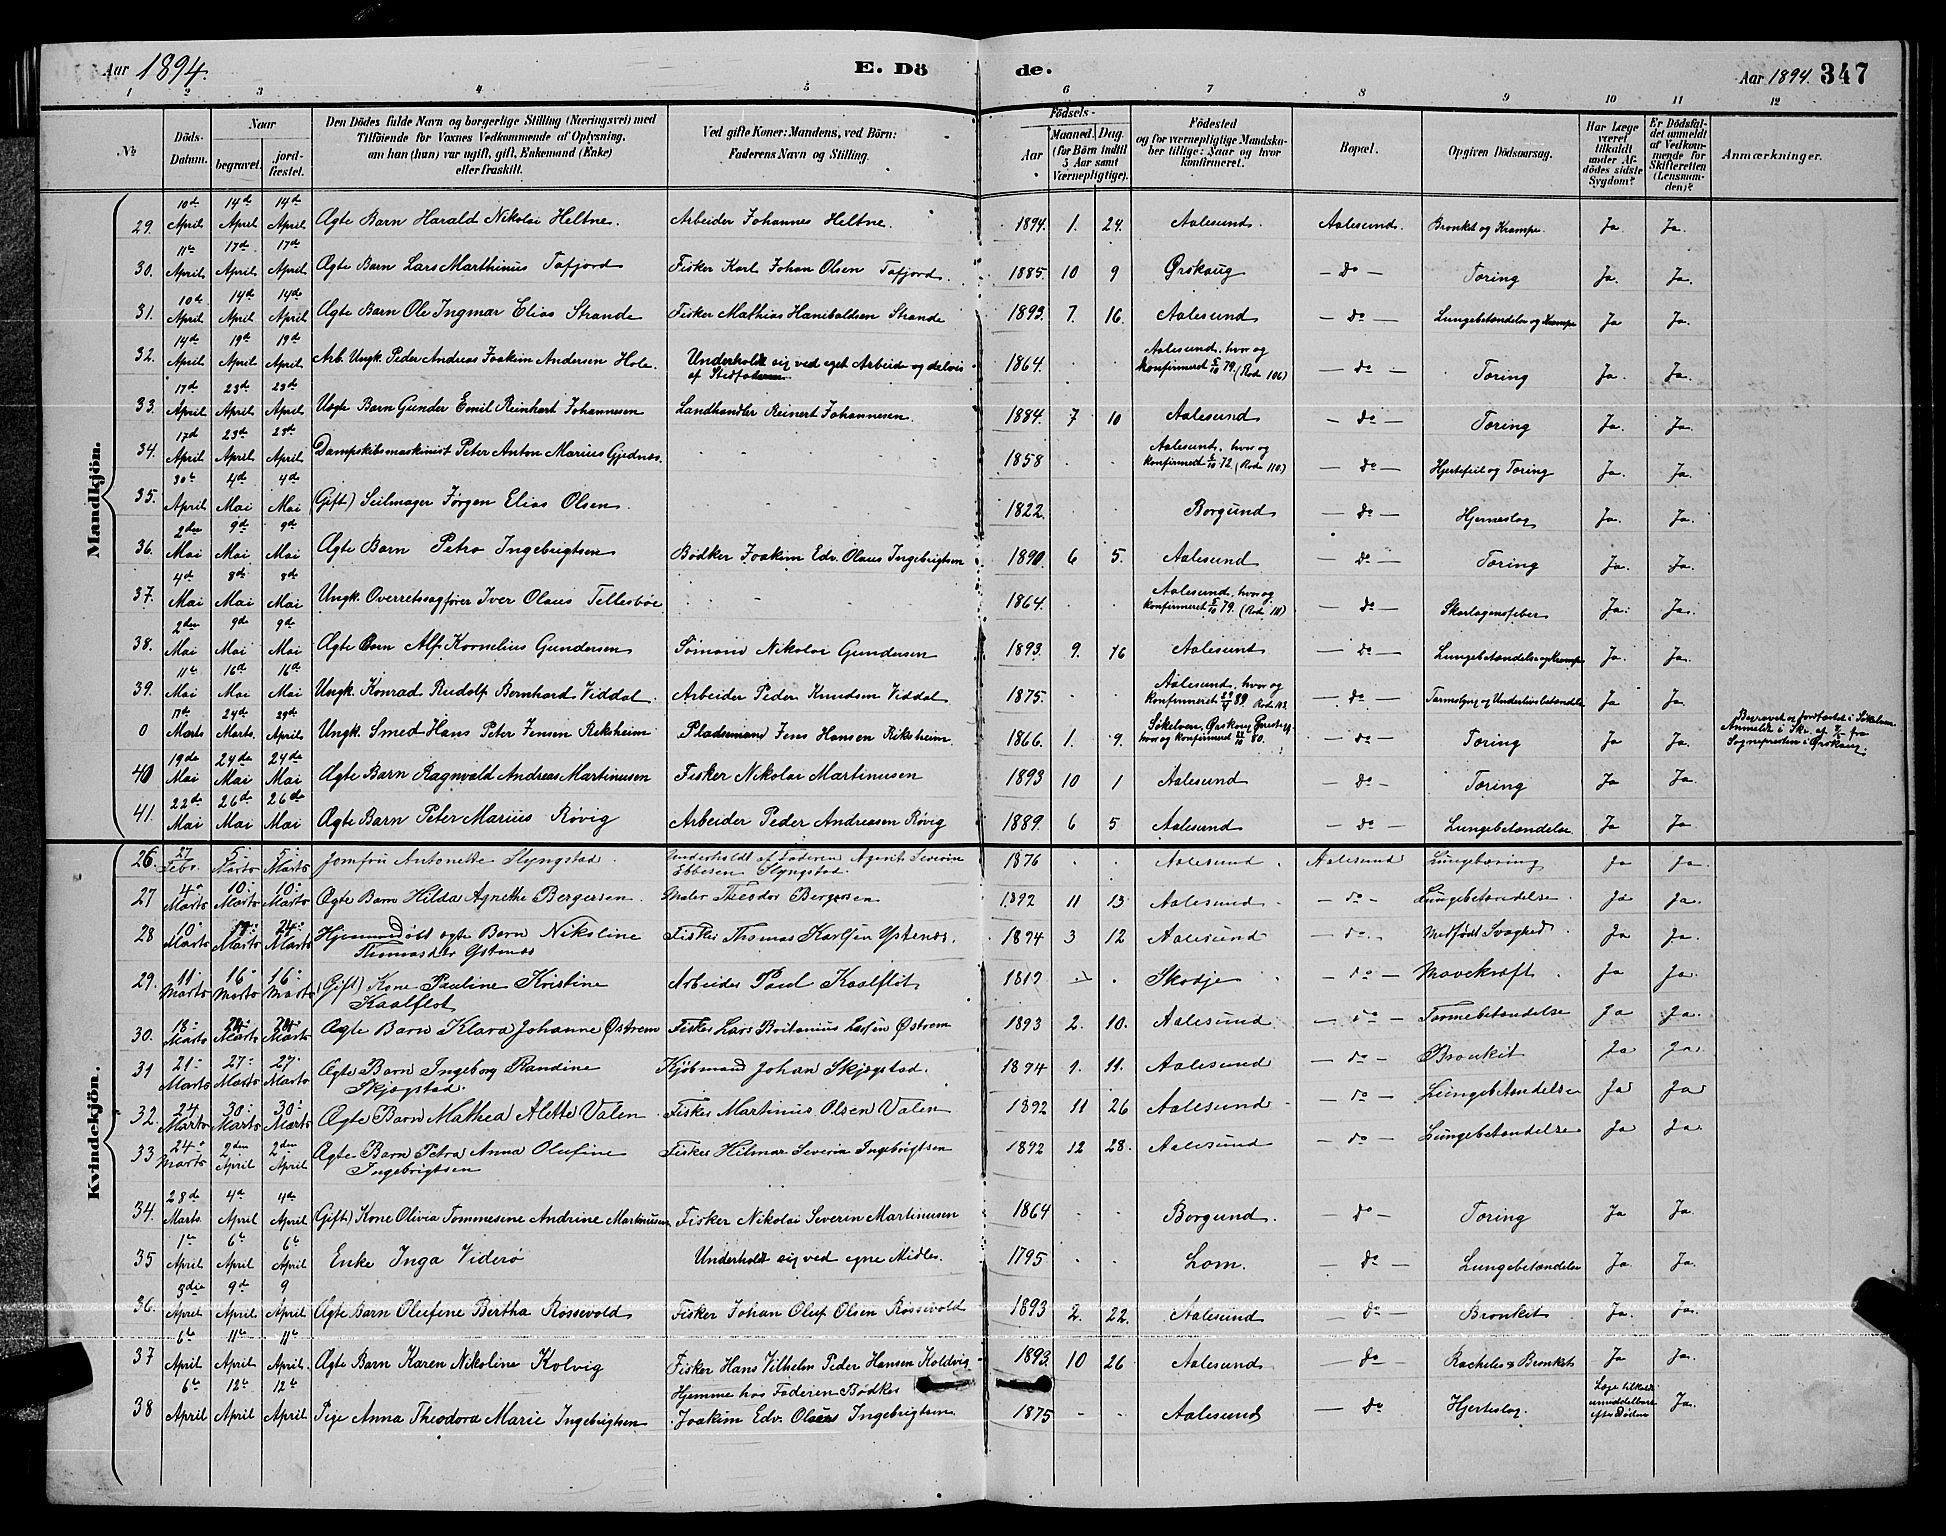 Aar 1894. E. Dö de. Aar 1894. 347
1 2 3 4 5 6 7 8 9 10 11 12
No
Döds-Datum.
Naar begravet. jord-fæstet.
Den Dödes fulde Navn og borgerlige Stilling (Næringsvei) med
Tilföiende for Voxnes Vedkommende af Oplysning,
om han (hun) var ugift, gift, Enkemand (Enke)
eller fraskilt.
Ved gifte Koner: Mandens, ved Börn:
Faderens Navn og Stilling.
Födsels-
Aar Maaned. Dag.
(for Börn indtil 5 Aar samt Værnepligtige).
Födested
og for værnepligtige Mandskaber tillige: Naar og hvor konfirmeret.
Bopæl.
Opgiven Dödsaarsag.
Har Læge været tilkaldt under Afdödes sidste Sygdom?
Er Dödsfaldet anmeldt af Vedkommende for Skifteretten (Lensmanden)?
Anmærkninger.
Mandkjön.
29. 10de April 14de April 14de April Ægte Barn Harald Nikolai Heltne. Arbeider Johannes Heltne. 1894. 1. 24. Aalesund. Aalesund. Bronkit og Krampe. Ja. Ja.
30. 11te April 17de April 17de April Ægte Barn Lars Marthinus Tafjord Fisker Karl Johan Olsen Tafjord. 1885 10 9 Ørskoug — Do — Tæring Ja. Ja.
31. 10de April 14de April 14de April Ægte Barn Ole Ingmar Elias Strande Fisker Mathias Haniboldsen Strande 1893. 7. 16. Aalesund — Do — Lungebetændelse og Krampe Ja Ja.
32. 14de April 19de April 19de April Arb. Ungk. Peder Andreas Joakim Andersen Hole. Underholdt sig ved eget Arbeide og delvis af Stedfaderen 1864. Aalesund, hvor og konfirmeret 5/10 79. (Rode 106) — Do — Tæring Ja. Ja.
33. 17de April 23de April 23de April Uægte Barn Gunder Emil Reinhart Johannesen Landhandler Reinert Johannesen. 1884 7 10 Aalesund — Do — Tæring Ja. Ja.
34. 17de April 23de April 23de April Dampskibsmaskinist Peter Anton Marius Gjednæs. 1858 Aalesund, hvor og konfirmeret 6/10 72. (Rode 110.) — Do — Hjertefeil og Tæring Ja. Ja.
35. 30te April 4de Mai 4de Mai (Gift) Seilmager Jørgen Elias Olsen 1822. Borgund — Do — Hjerneslag Ja. Ja.
36. 2den Mai 9de Mai 9de Mai Ægte Barn Petro Ingebrigtsen Bødker Joakim Edv. Olaus Ingebrigtsen 1890 6 5. Aalesund — Do — Tæring Ja. Ja.
37. 4de Mai 8de Mai 8de Mai Ungk. Overretssagfører Iver Olaus Tellesbøe 1864. Aalesund, hvor og konfirmeret 5/10 79. (Rode 111) — Do — Skarlagensfeber Ja. Ja.
38. 2den Mai 9de Mai 9de Mai Ægte Barn Alf Kornelius Gundersen Sømand Nikolai Gundersen 1893. 9. 16 Aalesund — Do — Lungebetændelse og Krampe Ja. Ja.
39. 11te Mai 16de Mai 16de Mai Ungk. Konrad Rudolf Bernhard Viddal. Arbeider Peder Knudsen Viddal 1875. Aalesund, hvor og konfirmeret 89. Rode — Do — Tarmslyng og Underlivsbetændelse Ja Ja.
0 17de Marts 24de Marts. 29de April Ungk. Smed Hans Peter Jensen Riksheim Pladsemand Jens Hansen Riksheim. 1866. 1. 9. Søkelven, Ørskoug Præstegj. hvor og konfirmeret 22/10 80. — Do — Tæring Ja Ja. Begravet og jordfæstet i Søkelven. Anmeldt i Skr. af fra Sognepresten i Ørskoug.
40 19de Mai 24de Mai 24de Mai Ægte Barn Ragnvald Andreas Martinusen Fisker Nikolai Martinusen 1893 10 1 Aalesund — Do — Tæring Ja Ja.
41. 22de Mai 26de Mai 26de Mai Ægte Barn Peter Marius Røvig Arbeider Peder Andreasen Røvig 1889. 6 5 Aalesund — Do — Lungebetændelse Ja Ja.
Kvindekjön.
26. 27 Febr. 5 Marts 5 Marts Jomfru Antonette Slyngstad. Underholdt af Faderen Agent Severin Ebbesen Slyngstad. 1876 Aalesund. Aalesund Lungetæring Ja Ja.
27 4 Marts 10 Marts 10 Marts Ægte Barn Hilda Agnethe Bergersen. Maler Theodor Bergersen 1892 11 13 Aalesund — do — Lungebetændelse. Ja Ja.
28 10 Marts Marts 24 Marts Hjemmedøbt ægte Barn Nikoline Thomasdtr Ystenæs Fisker Thomas Karlsen Ystenæs. 1894 3 12 Aalesund — do — Medfødt Svaghed Ja Ja
29. 11 Marts 16 Marts 16 Marts (Gift) Kone Pauline Kristine Kaalflot Arbeider Paul Kaalflot 1819 Skodje — do — Mavekræft Ja Ja.
30. 18 Marts 24 Marts 24 Marts Ægte Barn Klara Johanne Østrem Fisker Lars Britanius Larsen Østrem 1893 2. 10. Aalesund — do — Tarmebetændelse Ja Ja.
31 21 Marts 27 Marts 27 Marts Ægte Barn Ingeborg Randine Skjegstad. Kjøbmand Johan Skjegstad. 1894 1. 11. Aalesund — do — Bronkit Ja Ja.
32. 24 Marts 30 Marts 30 Marts Ægte Barn Mathea Alette Valen Fisker Martinus Olsen Valen 1892 11 26 Aalesund — do — Lungebetændelse Ja Ja
33 24 Marts 2den April 2den April Ægte Barn Petra Anna Olufine Ingebrigtsen Fisker Hilmar Severin Ingebrigtsen 1892 12 28. Aalesund — do — Lungebetændelse Ja Ja.
34. 28de Marts. 4de April 4de April (Gift) Kone Olivia Tommesine Andrine Martinusen Fisker Nikolai Severin Martinusen 1864 Borgund. — Do — Tæring Ja Ja.
35 1te April 6te April 6te April Enke Inga Viderø Underholdt sig ved egne Midler. 1795 Lom. Do Lungebetændelse Ja Ja.
36. 3die April 9de April 9 April Ægte Barn Olufine Bertha Røssevold Fisker Johan Oluf Olsen Røssevold 1893 2. 22. Aalesund — Do — Bronkit Ja. Ja.
37 6te April 11te April 11te April. Ægte Barn Karen Nikoline Kolvig Fisker Hans Vilhelm Peder Hansen Koldvig 1893. 10 26 Aalesund — Do — Rachitis & Bronkit Ja Ja.
38 6te April 12te April 12te April Pige Anna Theodora Marie Ingebrigtsen Hjemme hos Faderen Bødker Joakim Edv. Olaus Ingebrigtsen. 1875 Aalesund — Do Hjerteslag. Læge tilkaldt umiddelbart efter Døden Ja.